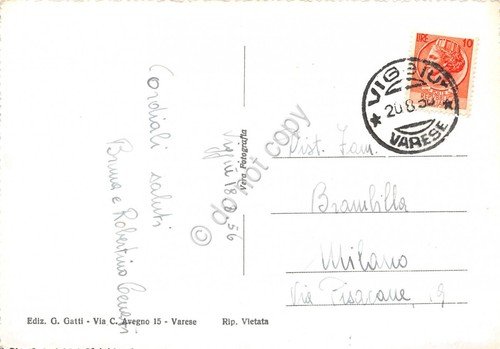 LIRE 10
VIGGIU'
20.8.56
VARESE
Cordiali saluti
Bruna e Robertino
Viggiù 18.8.56
Vera Fotografia
© do not copy
Dist. Fam.
Brambilla
Milano
Via Pisacane, 19
Ediz. G. Gatti - Via C. Avegno 15 - Varese Rip. Vietata